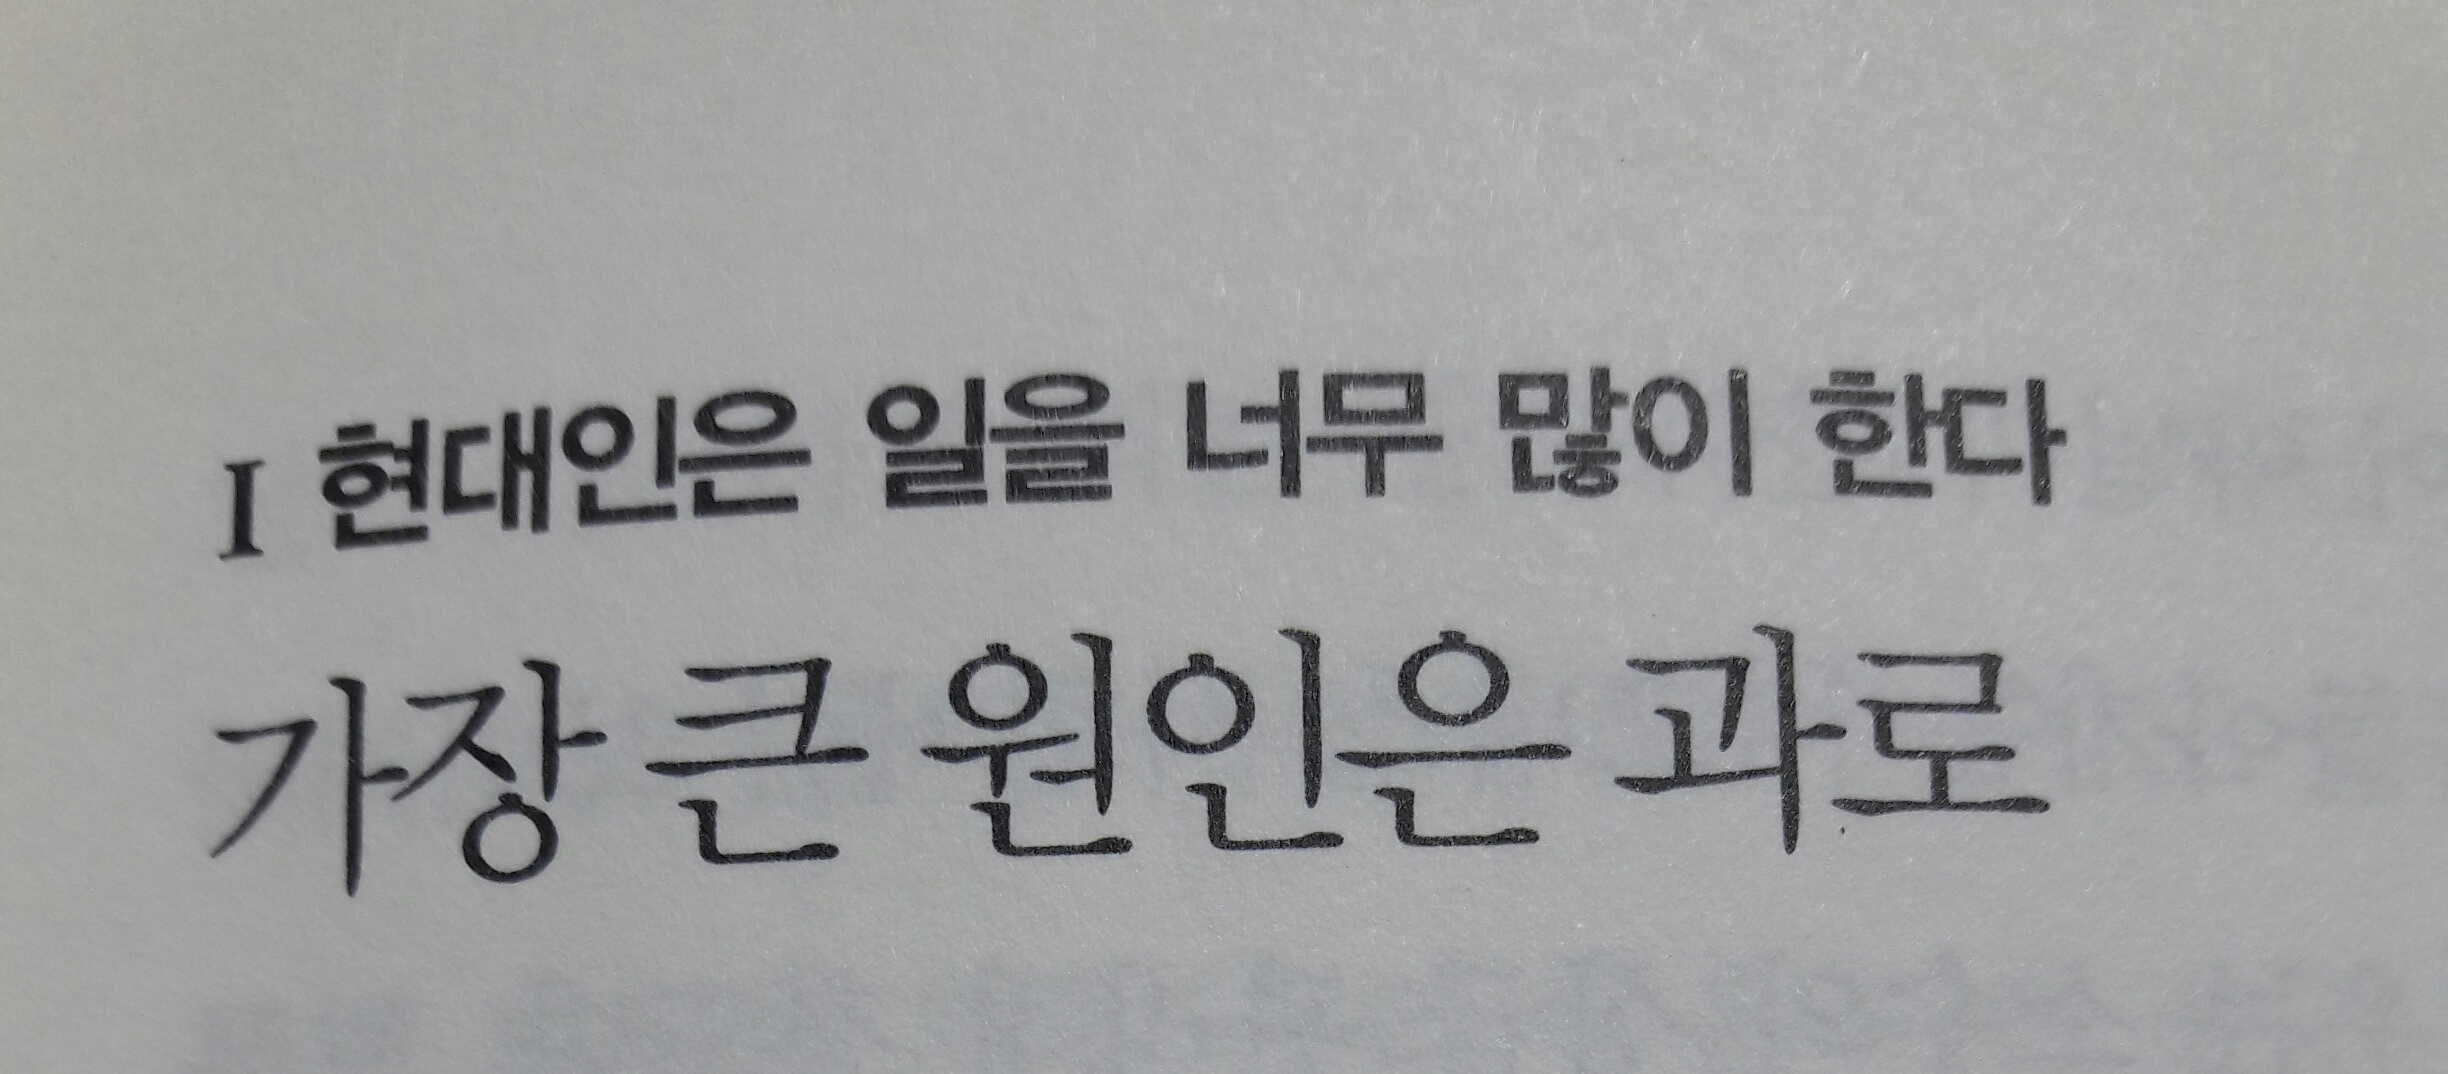 I 현대인은 일을 너무 많이 한다
가장 큰 원인은 과로